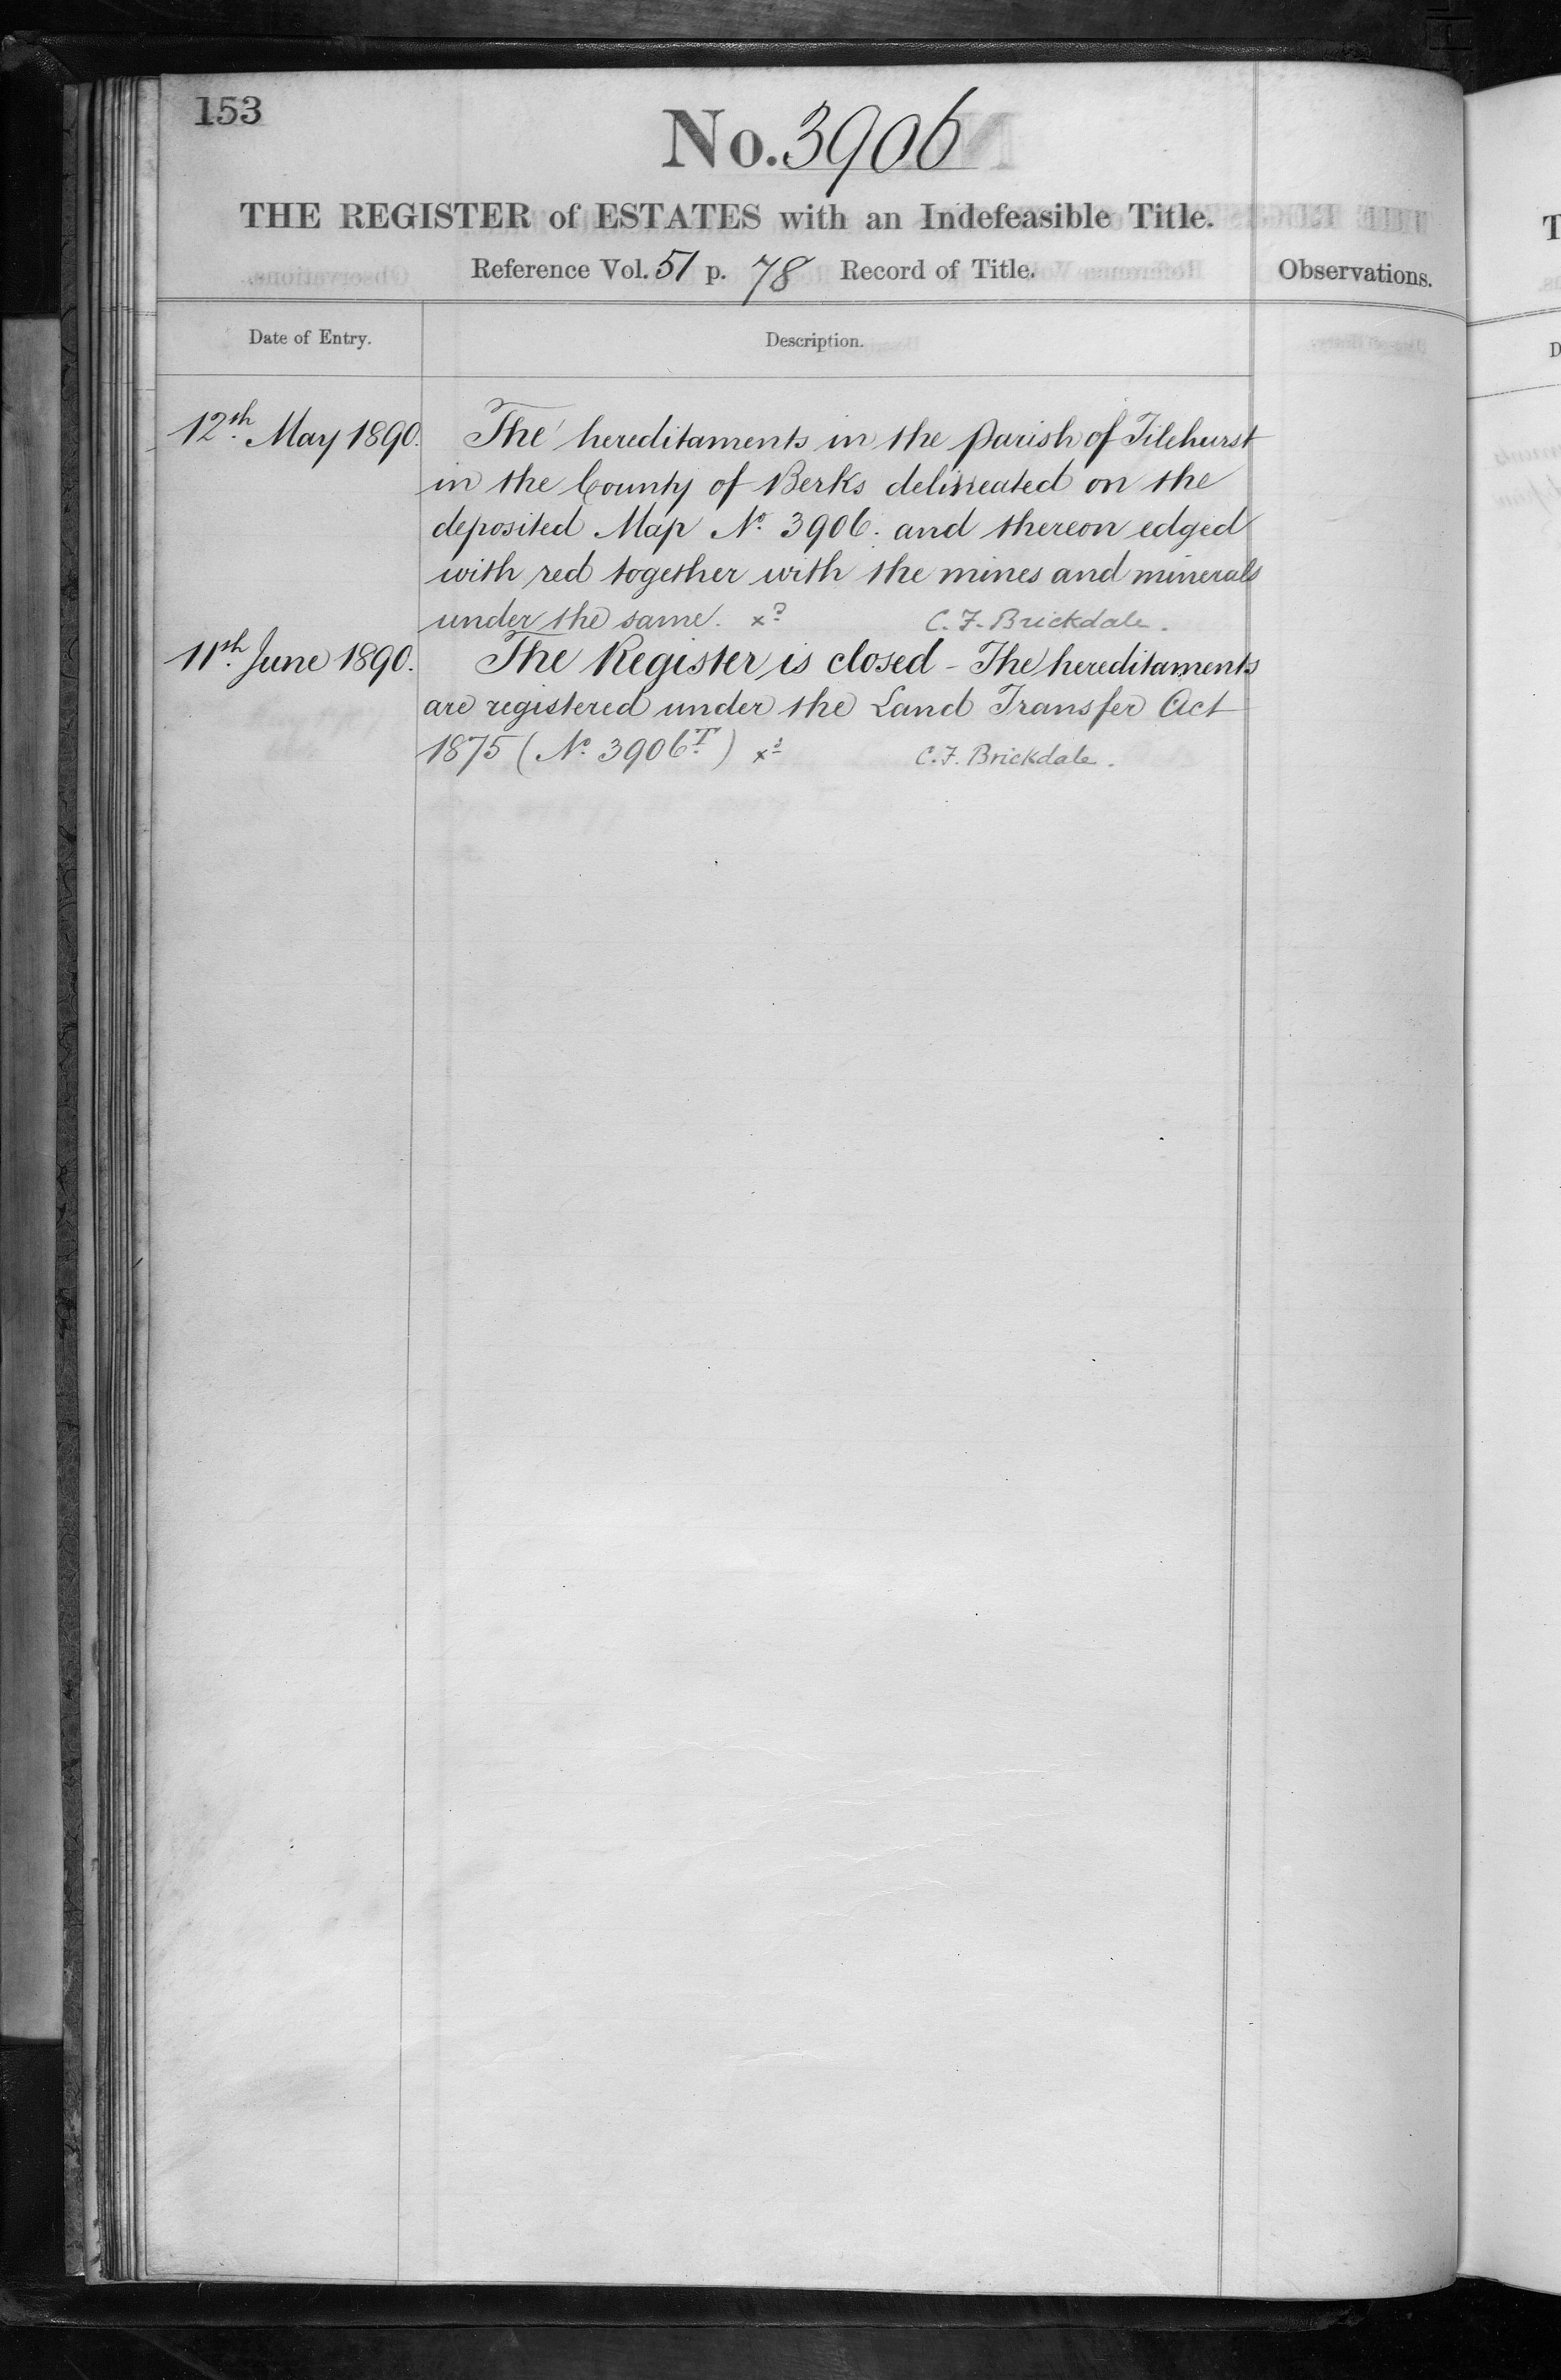 153
No. 3906
THE REGISTER of ESTATES with an Indefeasible Title.
Reference Vol. 51 p. 78 Record of Title.
Observations.
Date of Entry.
Description.
12th. May 1890.
The hereditaments in the parish of Tilehurst
in the County of Berks delineated on the
deposited Map No. 3906. and thereon edged
with red together with the mines and minerals
under the same.
C. F. Brickdale.
11th. June 1890.
The Register is closed - The hereditaments
are registered under the Land Transfer Act
1875 (No. 3906T.)
C. F. Brickdale.